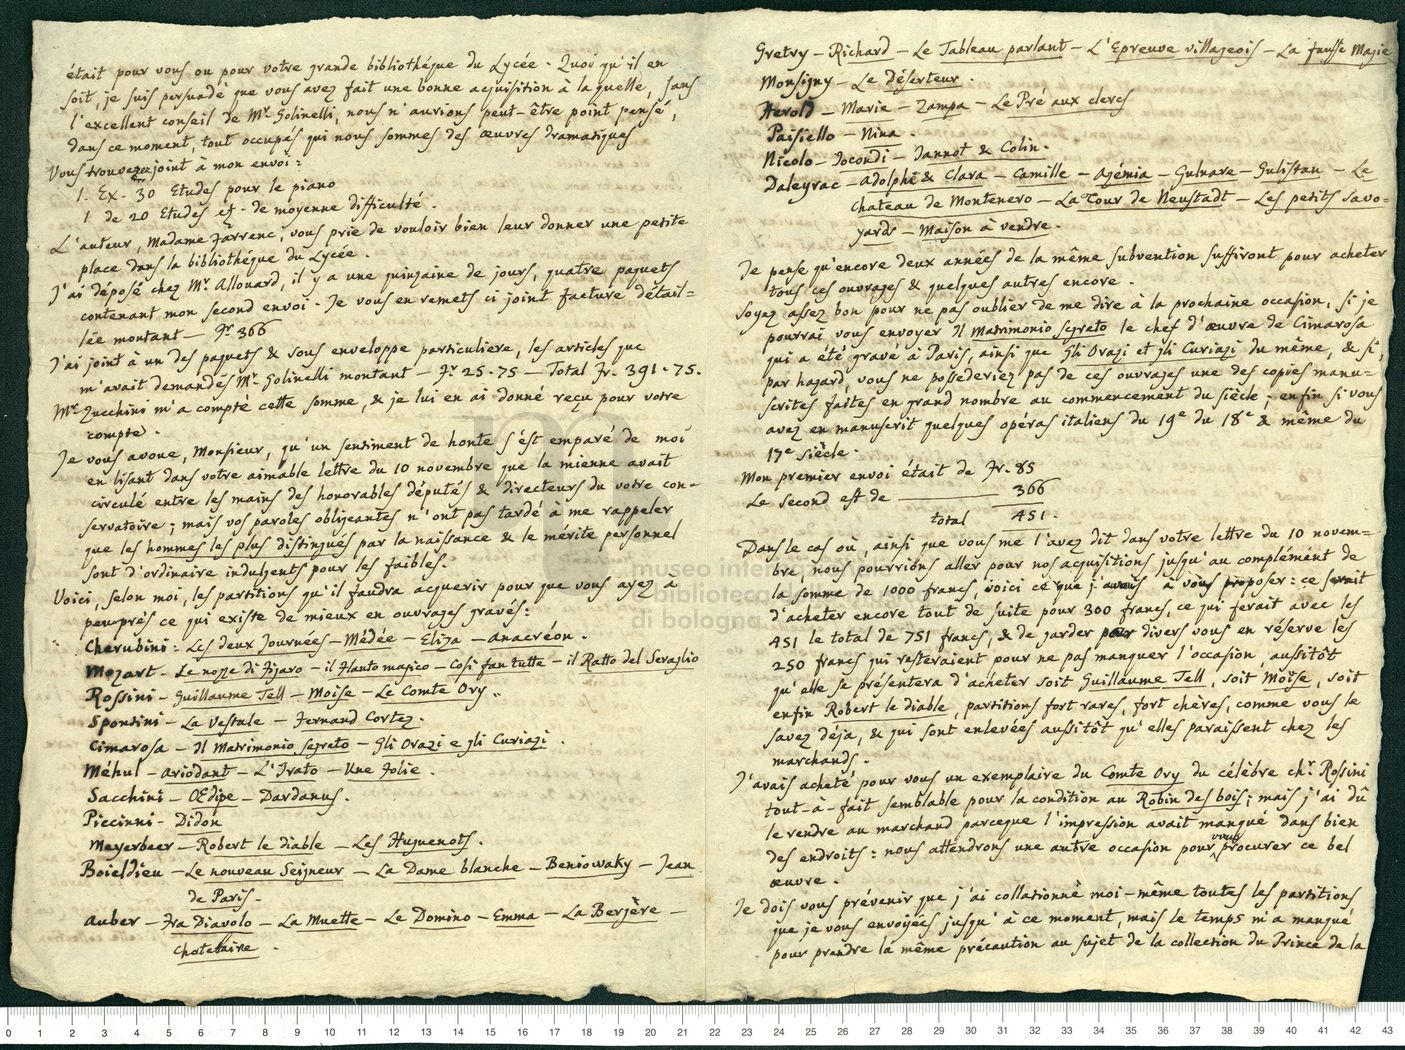 était pour vous ou pour votre grande bibliothéque du Lycée. Quoi qu'il en
soit, je suis persuadé que vous avez fait une bonne acquisition à la quelle, sans
l'excellent conseil de Mr. Golinelli, nous n'aurions peut-être point pensé,
dans ce moment, tout occupés qui nous sommes des œuvres dramatiques
Vous trouverez joint à mon envoi:
1. Ex. 30 Etudes pour le piano
1 de 20 Etudes id. de moyenne difficulté.
L'auteur, Madame Farrenc, vous prie de vouloir bien leur donner une petite
place dans la bibliothéque du Lycée.
J'ai déposé chez Mr. Allouard, il y a une quinzaine de jours, quatre paquets
contenant mon second envoi. Je vous en remets ci joint facture détail=
lée montant — Fr. 366
J'ai joint à un des paquets & sous enveloppe particuliere, les articles que
m'avait demandés Mr. Golinelli montant — Fr. 25.75 — Total Fr. 391.75.
Mr. Zucchini m'a compté cette somme, & je lui en ai donné reçu pour votre
compte.
Je vous avoue, Monsieur, qu'un sentiment de honte s'est emparé de moi
en lisant dans votre aimable lettre du 10 novembre que la mienne avait
circulé entre les mains des honorables députés & directeurs du votre con=
servatoire; mais vos paroles obligeantes n'ont pas tardé à me rappeler
que les hommes les plus distingués par la naissance & le mérite personnel
sont d'ordinaire indulgents pour les faibles.
Voici, selon moi, les partitions qu'il faudra acquerir pour que vous ayez a
peuprés ce qui existe de mieux en ouvrages gravés:
Cherubini: Les deux Journées — Médée — Eliza — Anacréon.
Mozart — Le nozze di Figaro — il Flauto magico — Cosi fan tutte — il Ratto del Seraglio
Rossini — Guillaume Tell — Moise — Le Comte Ory.
Spontini — La Vestale — Fernand Cortez.
Cimarosa — Il Matrimonio segreto — Gli Orazi e gli Curiazi.
Méhul — Ariodant — L'Irato — Une Folie.
Sacchini — Œdipe — Dardanus.
Piccinni — Didon
Meyerbeer — Robert le diable — Les Huguenots.
Boieldieu — Le nouveau Seigneur — La Dame blanche — Beniowsky — Jean
de Paris.
Auber — Fra Diavolo — La Muette — Le Domino — Emma — La Bergère —
Chatelaine.
Gretry — Richard — Le Tableau parlant — L'Epreuve villageois — La fausse Magie
Monsigny — Le Déserteur.
Herold — Marie — Zampa — Le Pré aux clercs
Paisiello — Nina.
Nicolo — Jocondi — Jannot & Colin.
Daleyrac — Adolphe & Clara — Camille — Azémia — Gulnare — Gulistan — Le
Chateau de Montenero — La Tour de Neustadt — Les petits Savo=
yards — Maison à vendre.
Je pense qu'encore deux années de la même subvention suffiront pour acheter
tous ces ouvrages & quelques autres encore.
Soyez assez bon pour ne pas oublier de me dire à la prochaine occasion, si je
pourrai vous envoyer Il Matrimonio segreto le chef d'œuvre de Cimarosa
qui a été gravé à Paris, ainsi que Gli Orazi et gli Curiazi du même, & si,
par hazard, vous ne posséderiez pas de ces ouvrages une des copies manu=
scrites faites en grand nombre au commencement du siècle; enfin si vous
avez en manuscrit quelques opéras italiens du 19e du 18e & même du
17e siècle.
Mon premier envoi était de Fr. 85
Le second est de — 366
total 451.
Dans le cas où, ainsi que vous me l'avez dit dans votre lettre du 10 novem=
bre, nous pourrions aller pour nos acquisitions jusqu'au complément de
la somme de 1000 francs, voici ce que j'aurais à vous proposer: ce serait
d'acheter encore tout de suite pour 300 francs, ce qui ferait avec les
451 le total de 751 francs, & de garder par divers vous en réserve les
250 francs qui resteraient pour ne pas manquer l'occasion, aussitôt
qu'elle se présentera d'acheter soit Guillaume Tell, soit Moïse, soit
enfin Robert le diable, partitions fort rares, fort chères, comme vous le
savez déja, & qui sont enlevées aussitôt qu'elles paraissent chez les
marchands.
J'avais acheté pour vous un exemplaire du Comte Ory du célèbre chr. Rossini
tout-à-fait semblable pour la condition au Robin des bois; mais j'ai dû
le rendre au marchand parceque l'impression avait manqué dans bien
des endroits: nous attendrons une autre occasion pour vous procurer ce bel
œuvre.
Je dois vous prévenir que j'ai collationné moi-même toutes les partitions
que je vous envoyées jusqu'à ce moment, mais le temps m'a manqué
pour prendre la même précaution au sujet de la collection du Prince de la
museo internazionale
biblioteca della musica
di bologna